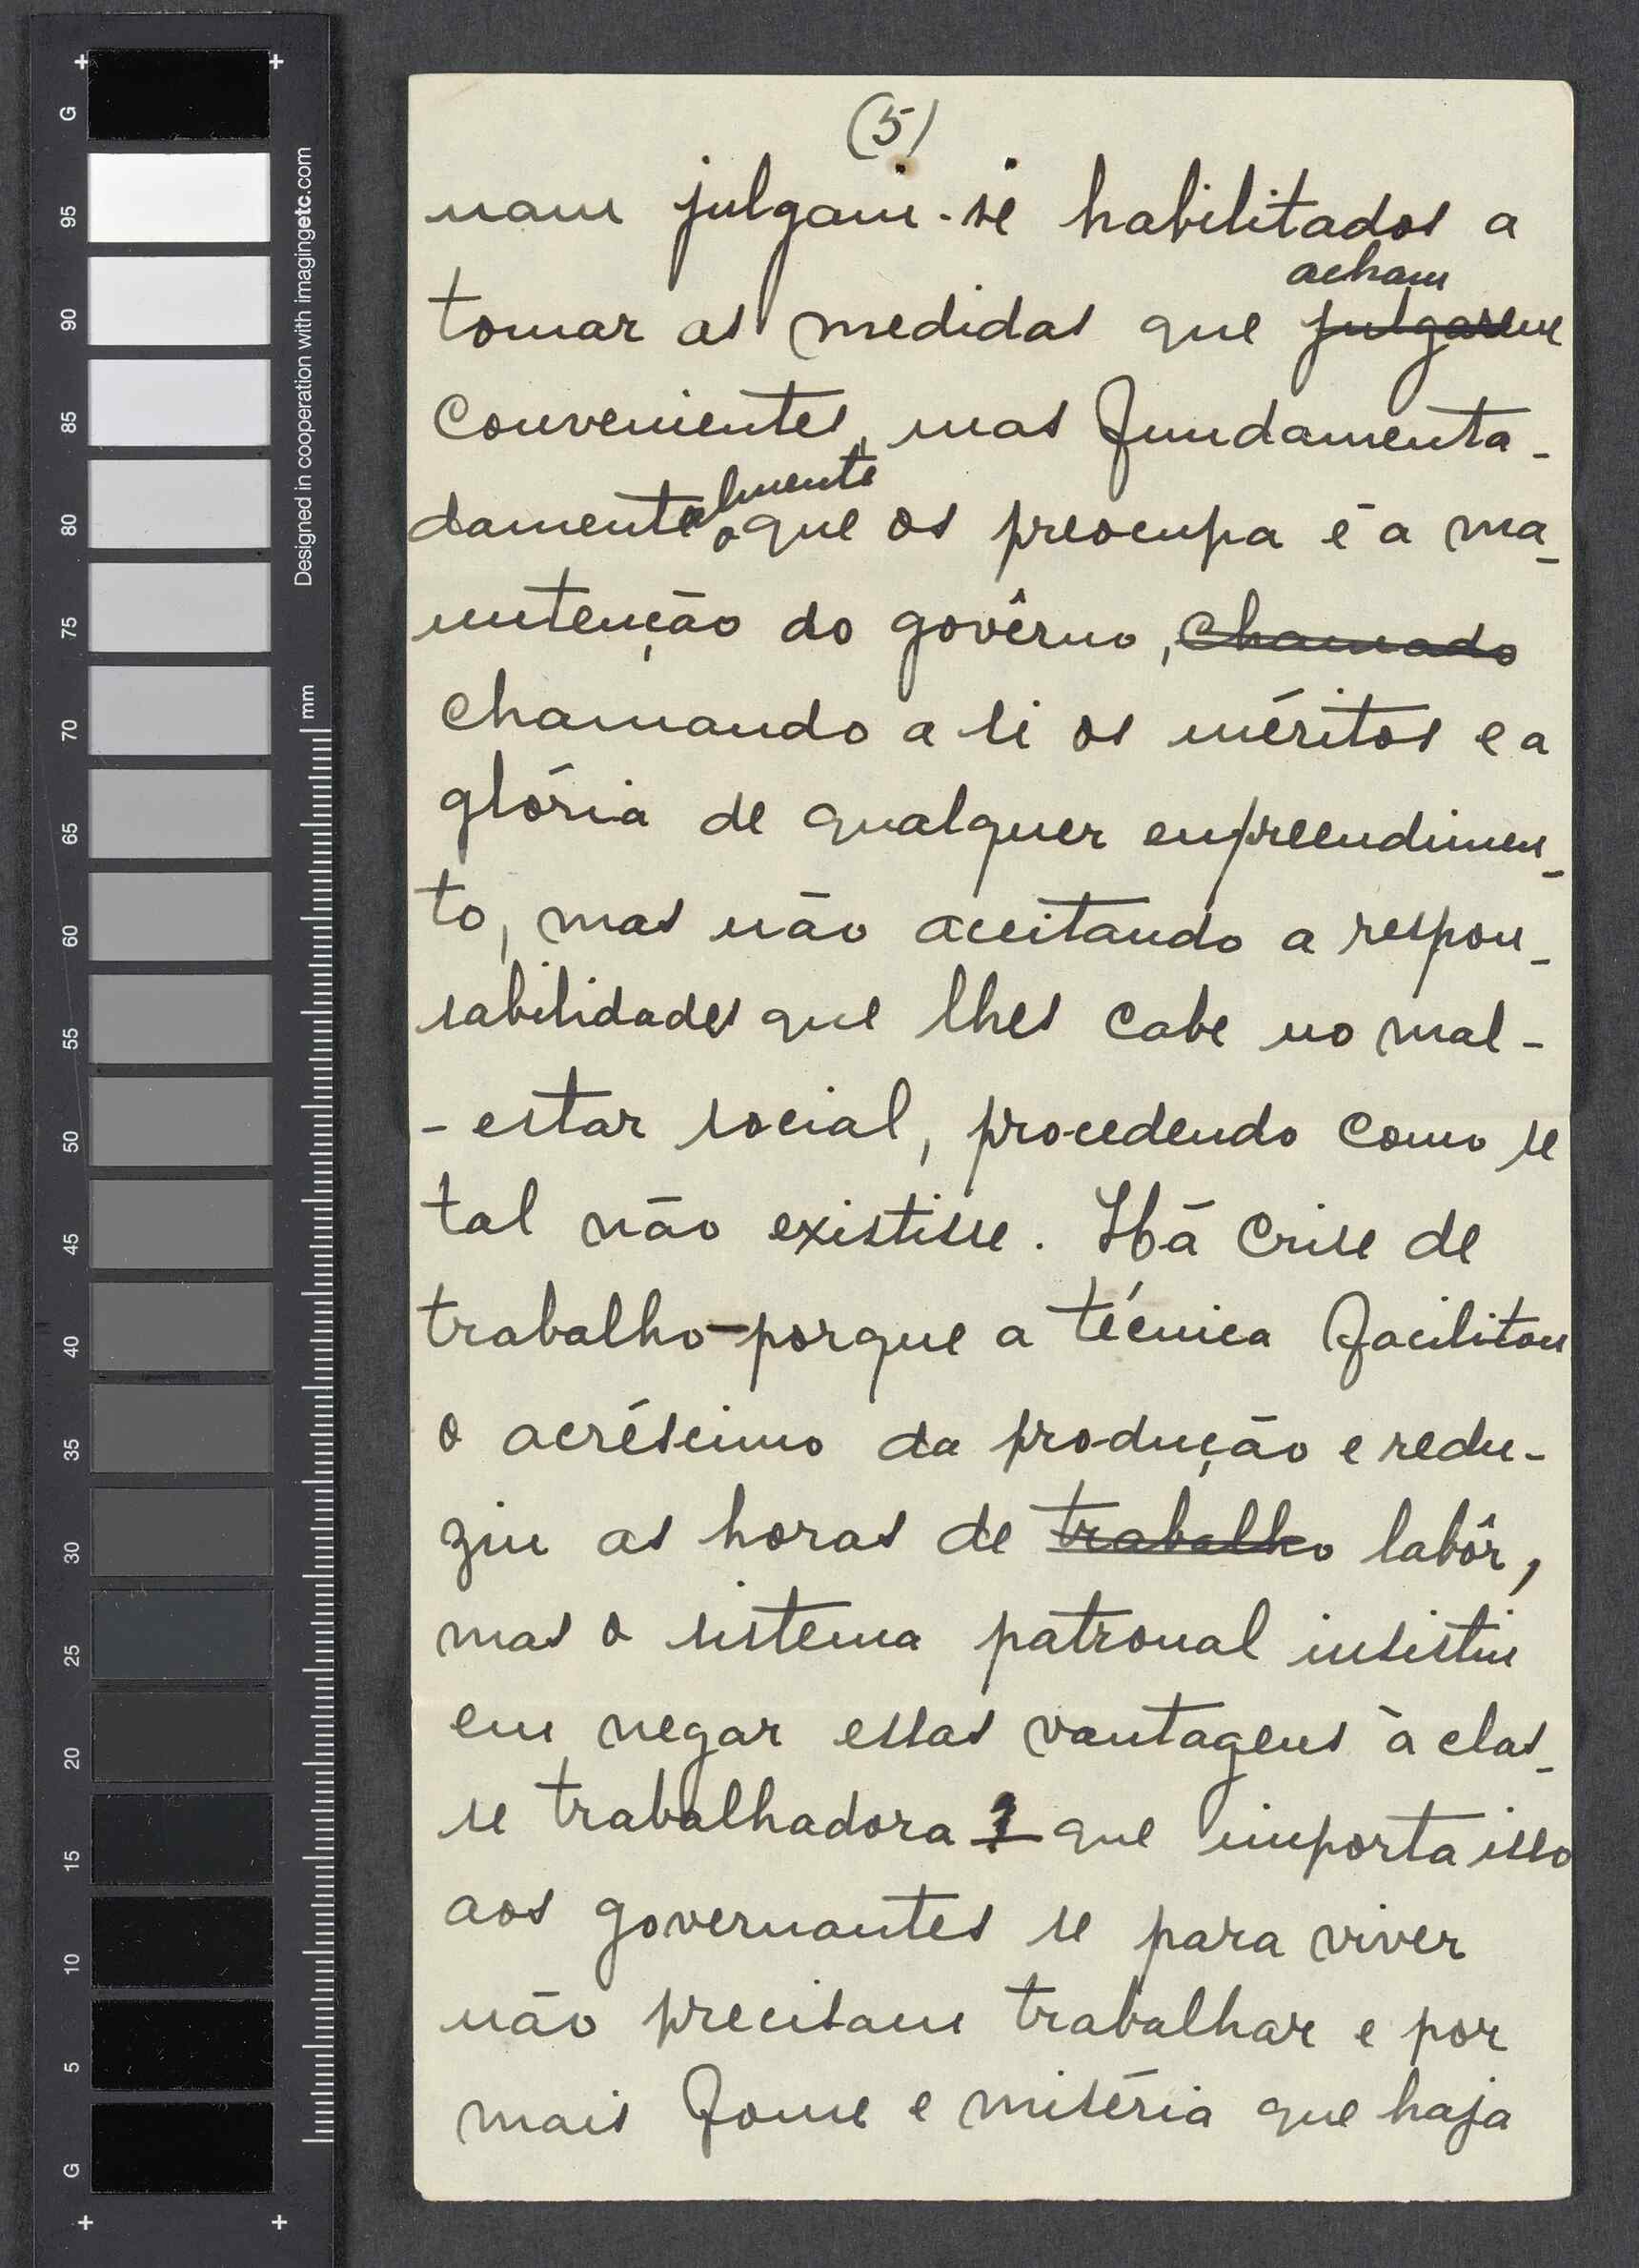 (5)
nam julgam-se habilitados a
acham
tomar as medidas que julgarem
convenientes, mas fundamenta-
lmente
damente o que os preocupa é a ma-
nutenção do govêrno, chamado
chamando a si os méritos e a
glória de qualquer empreendimen-
to, mas não aceitando a respon-
sabilidades que lhes cabe no mal-
-estar social, procedendo como se
tal não existisse. Há crise de
trabalho - porque a técnica facilitou
o acréscimo da produção e redu-
ziu as horas de trabalho labôr,
mas o sistema patronal insistiu
em negar essas vantagens à clas-
se trabalhadora que importa isso
aos governantes se para viver
não precisam trabalhar e por
mais fome e miséria que haja
G
95
90
85
80
75
70
65
60
55
50
45
40
35
30
25
20
15
10
5
G
Designed in cooperation with imagingetc.com
mm